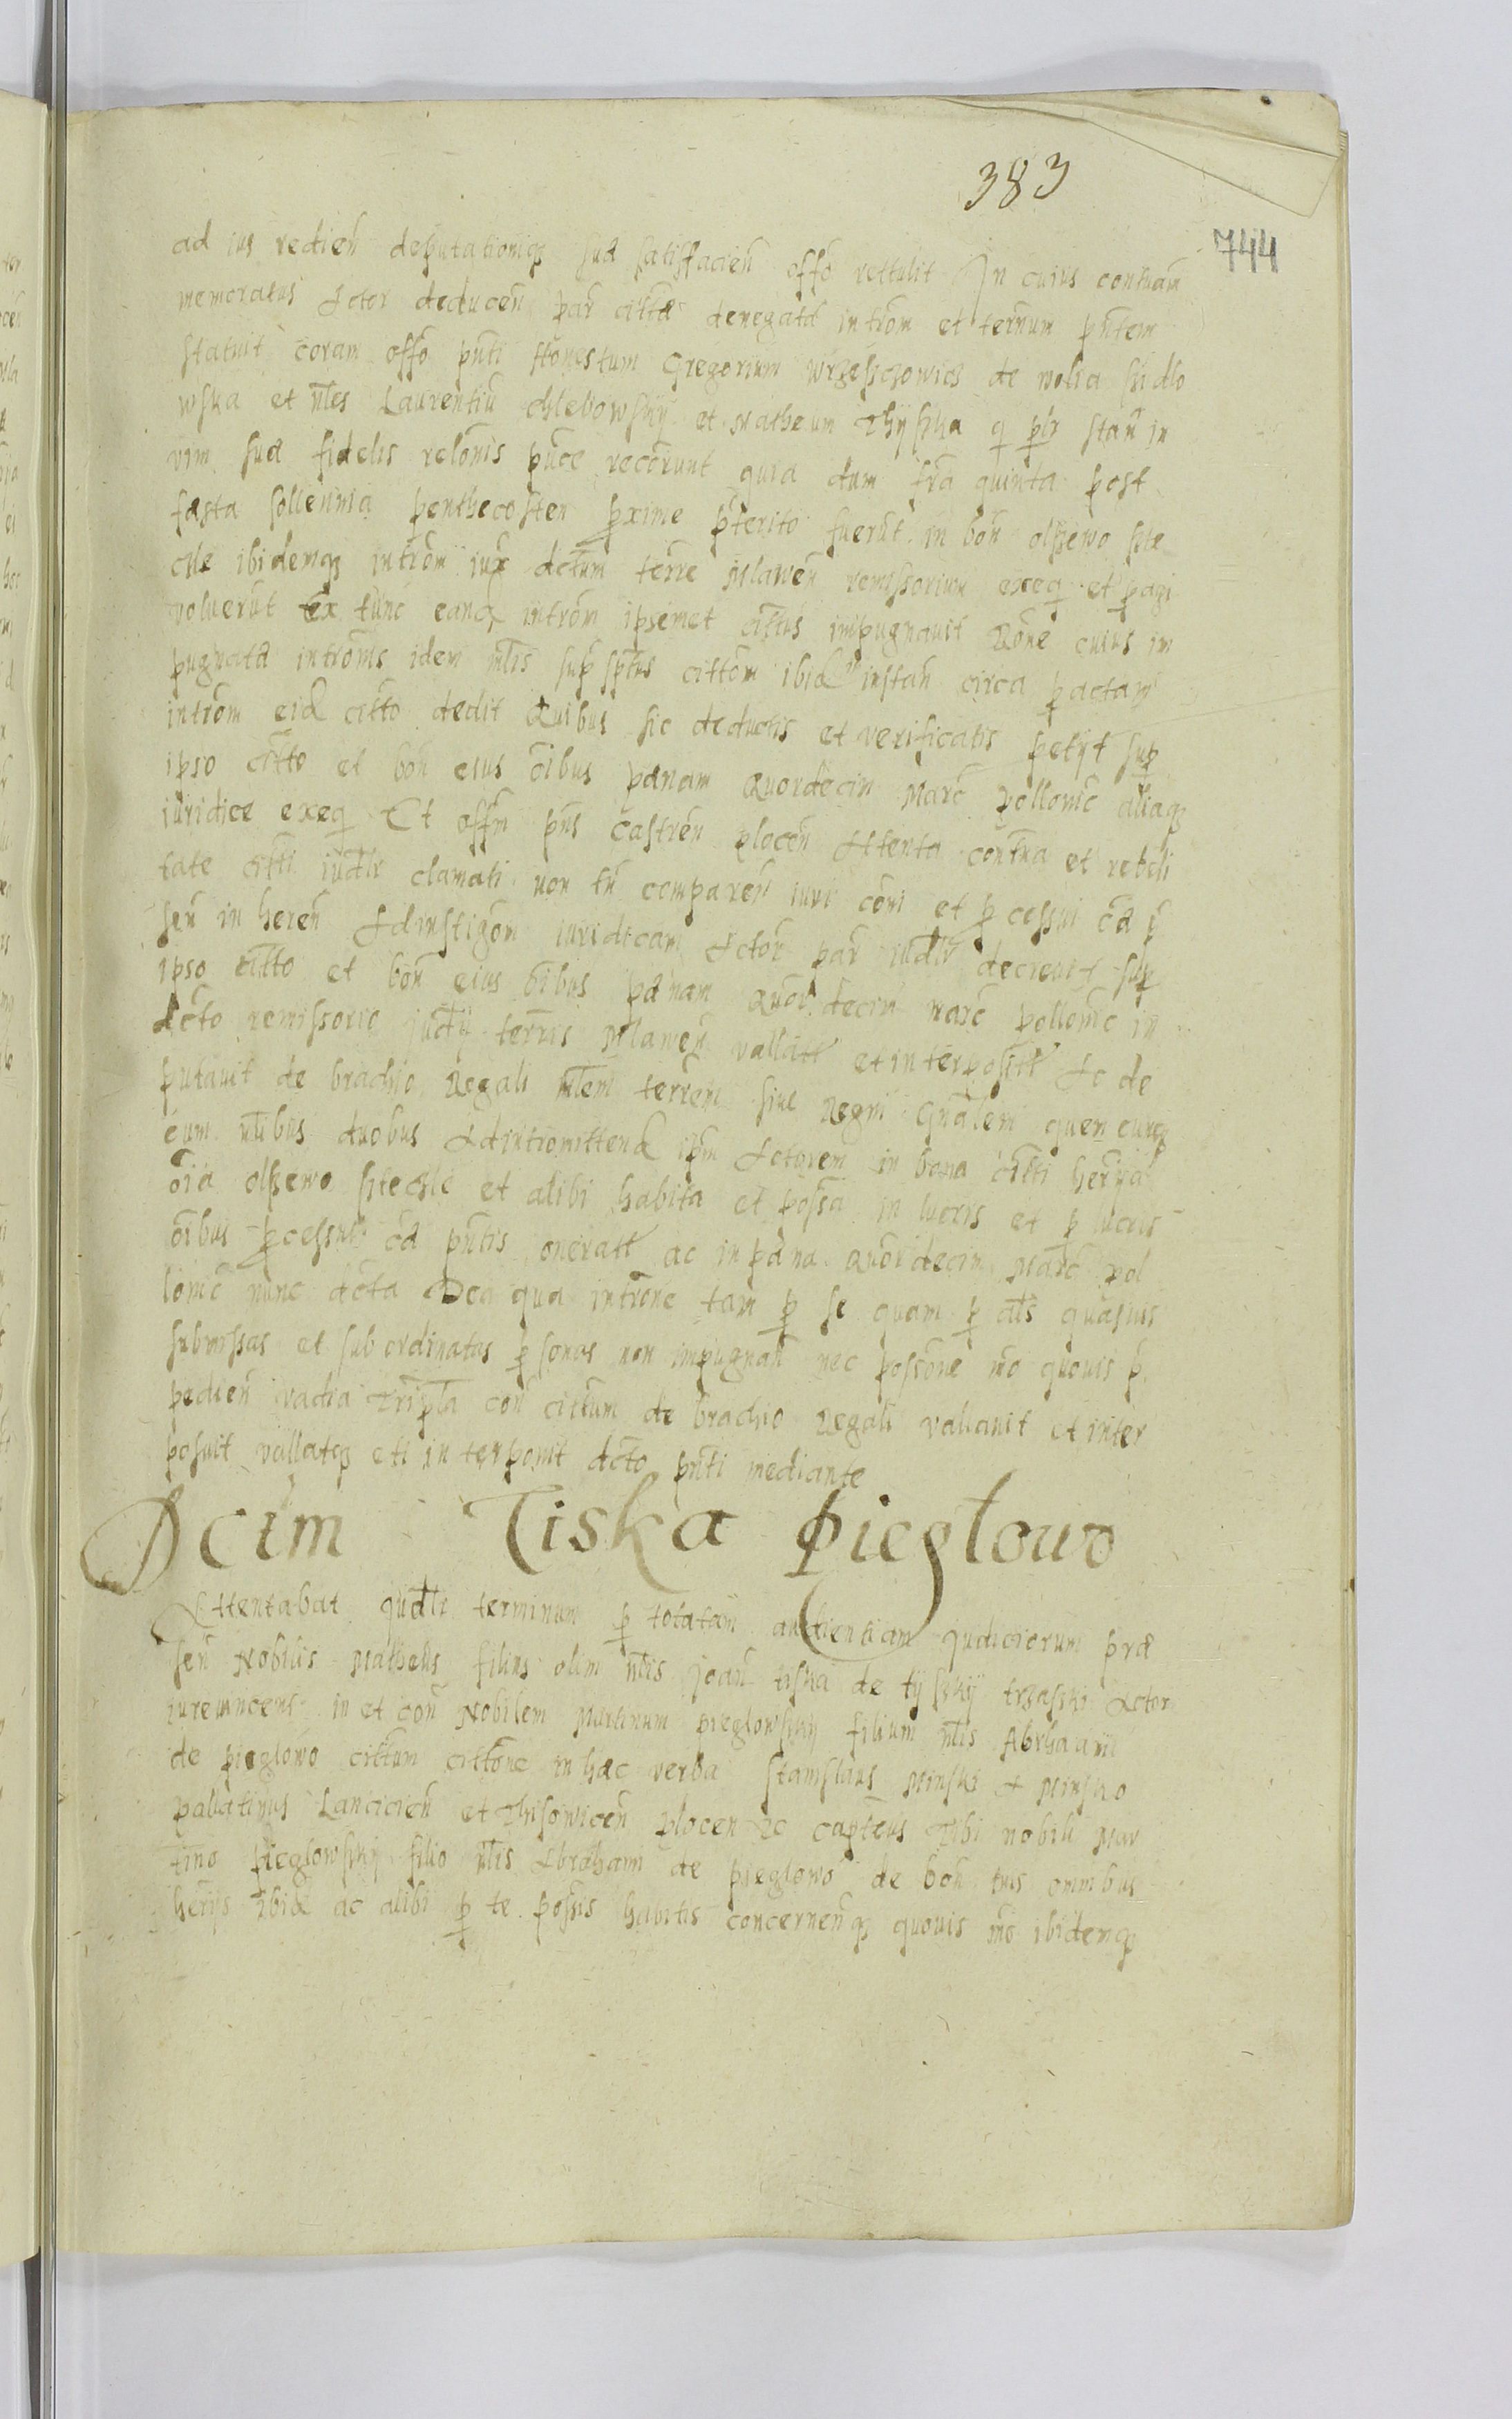 383
744
ad ius redien̄ deputationiq3 suæ satisfacien̄ offo rettulit In cuius contuam̄
memoratus Actor deducen̄ par cittæ denegatā introm̄ et ternum pn̄tem
statuit coram offo pn̄ti Honestum Gregorium wrzeszczowicz de wolia szidlo
wska et n̄les Laurentiū Chlebowskÿ et Matheum Thÿska q pl̄r stan̄ in
vim suæ fidelis relōnis pn̄ce recōrunt quia dum fr̄a quinta post
fæsta sollennia penthecosten p̱xime pt̄erito fuerūt in bon̄ olszewo site
ibidemq3 introm̄ iux̄ dctum terræ Mlawen̄ remissorium exeq̄ et p̱agi
voluerūt Ex tūnc eand̄ introm̄ ipsemet cittus impugnauit Rōne cuius im
pugnatæ introm̄s idem m̄lis cittōm ibid̄ instan̄ circa p̱actam
introm̄ eid̄ citto dedit Quibus sic deductis et verificatis petijt sup̱
ipso citto et bon̄ eius oībus pænam quordecim Marc̄ pollonic̄ aliaq3
iuridice exeq̄ Et offm̄ pn̄s Castren̄ plocen̄ Attenta contua et rebelli
tate citti iud̄lr clamati non tn̄ comparen̄ iuri com̄i et p̱cessui
sen̄ in heren̄ Ad instigōm iuridicam Actor̄ par iud̄lr decreuit sup̱
ipso citto et bon̄ eius oībus pænam quor decim marc̄ pollonic̄ in
dcto remissorio judij terris Mlawen̄ vallatt et interpositt Ac de
putauit de brachio Regali m̄lem terrem̄ siue Regni Gnālem quem cunq3
cum n̄libus duobus Ad intromittend̄ ipm̄ Actorem in bona citti
oīa olszewo et alibi habita et possa in lucris et p̱ lucris
oībus p̱cessus pn̄tis oneratt ac in pæna quordecim Marc̄ pol
lonic̄ nunc dcta De qua introne tam p̱ se quam p̱ al̄s quasuis
submissas et subordinatas p̱sonas non impugnan̄ nec possōne mo quouis
pedien̄ vadia tripla con̄ cittum de brachio Regali vallauit et inter
posuit vallatq3 eti interponit dcto pn̄ti mediante
Actm Tiska Pieglowo
Attentabat terminum p̱ totatam audientiam Judiciorum præ
sen̄ Nobilis Matheus filius olim n̄lis Joan̄ tiska de tÿszkÿ trzaski Actor
iureuincens in et con̄ Nobilem Martinum pieglowskÿ filium n̄lis Abrhaami
de pieglowo cittum cittōne in hæc verba Stanislaus Minski A Minsko
pallatinus Lancicien̄ et plocen Ac capteus Tibi nobili Mar
tino pieglowskÿ filio n̄lis Abrahami de pieglowo de bon̄ tuis omnibus
ibid̄ ac alibi p̱ te possis habitis concernen̄q3 quouis mo ibidemq3